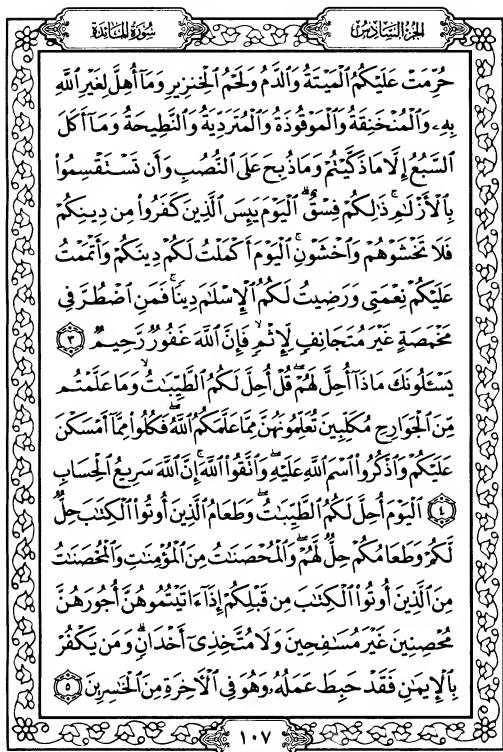 سُورَةُ المَائدة
الجُزءُ السَّادِسُ
حُرِّمَتْ عَلَيْكُمُ ٱلْمَيْتَةُ وَٱلدَّمُ وَلَحْمُ ٱلْخِنزِيرِ وَمَآ أُهِلَّ لِغَيْرِ ٱللَّهِ
بِهِۦ وَٱلْمُنْخَنِقَةُ وَٱلْمَوْقُوذَةُ وَٱلْمُتَرَدِّيَةُ وَٱلنَّطِيحَةُ وَمَآ أَكَلَ
ٱلسَّبُعُ إِلَّا مَا ذَكَّيْتُمْ وَمَا ذُبِحَ عَلَى ٱلنُّصُبِ وَأَن تَسْتَقْسِمُوا۟
بِٱلْأَزْلَٰمِ ۚ ذَٰلِكُمْ فِسْقٌ ۗ ٱلْيَوْمَ يَئِسَ ٱلَّذِينَ كَفَرُوا۟ مِن دِينِكُمْ
فَلَا تَخْشَوْهُمْ وَٱخْشَوْنِ ۚ ٱلْيَوْمَ أَكْمَلْتُ لَكُمْ دِينَكُمْ وَأَتْمَمْتُ
عَلَيْكُمْ نِعْمَتِى وَرَضِيتُ لَكُمُ ٱلْإِسْلَٰمَ دِينًا ۚ فَمَنِ ٱضْطُرَّ فِى
مَخْمَصَةٍ غَيْرَ مُتَجَانِفٍ لِّإِثْمٍ ۙ فَإِنَّ ٱللَّهَ غَفُورٌ رَّحِيمٌ ٣
يَسْـَٔلُونَكَ مَاذَآ أُحِلَّ لَهُمْ ۖ قُلْ أُحِلَّ لَكُمُ ٱلطَّيِّبَٰتُ ۙ وَمَا عَلَّمْتُم
مِّنَ ٱلْجَوَارِحِ مُكَلِّبِينَ تُعَلِّمُونَهُنَّ مِمَّا عَلَّمَكُمُ ٱللَّهُ ۖ فَكُلُوا۟ مِمَّآ أَمْسَكْنَ
عَلَيْكُمْ وَٱذْكُرُوا۟ ٱسْمَ ٱللَّهِ عَلَيْهِ ۖ وَٱتَّقُوا۟ ٱللَّهَ ۚ إِنَّ ٱللَّهَ سَرِيعُ ٱلْحِسَابِ
٤ ٱلْيَوْمَ أُحِلَّ لَكُمُ ٱلطَّيِّبَٰتُ ۖ وَطَعَامُ ٱلَّذِينَ أُوتُوا۟ ٱلْكِتَٰبَ حِلٌّ
لَّكُمْ وَطَعَامُكُمْ حِلٌّ لَّهُمْ ۖ وَٱلْمُحْصَنَٰتُ مِنَ ٱلْمُؤْمِنَٰتِ وَٱلْمُحْصَنَٰتُ
مِنَ ٱلَّذِينَ أُوتُوا۟ ٱلْكِتَٰبَ مِن قَبْلِكُمْ إِذَآ ءَاتَيْتُمُوهُنَّ أُجُورَهُنَّ
مُحْصِنِينَ غَيْرَ مُسَٰفِحِينَ وَلَا مُتَّخِذِىٓ أَخْدَانٍ ۗ وَمَن يَكْفُرْ
بِٱلْإِيمَٰنِ فَقَدْ حَبِطَ عَمَلُهُۥ وَهُوَ فِى ٱلْءَاخِرَةِ مِنَ ٱلْخَٰسِرِينَ ٥
١٠٧